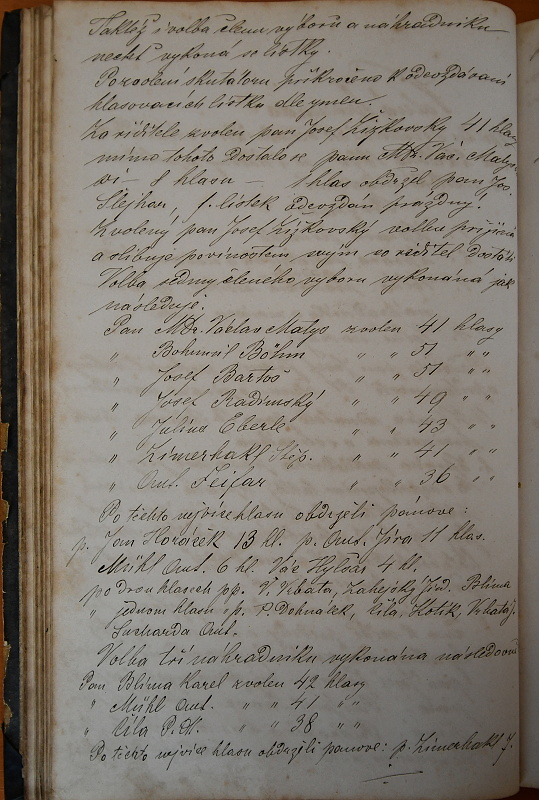 Taktéž i volba členu výboru a náhradníku
nechť vykoná se lístky.
Po zvolení skutátoru přikročeno k odevzdávání
hlasovacích lístku dle jmen.
Za ředitele zvolen pan Josef Žižkovský 41 hlasy
mimo tohoto dostalo se panu MDr. Vác. Matys
ovi — 8 hlasu — 1 hlas obdržel pan Jos.
Slejhar, 1. lístek odevzdán prázdný.
Zvolený pan Josef Žižkovský volbu přijímá
a slibuje povinostem svým co ředitel dostáti
Volba sedmičleného výboru vykonána jak
následuje.
Pan MDr. Václav Matys zvolen 41 hlasy
„ Bohumil Böhm „ „ 51 „ „
„ Josef Bartoš „ „ 51 „ „
„ Josef Radimský „ „ 49 „ „
„ Julius Eberle „ „ 43 „ „
„ Zimerhakl Štěp. „ „ 41 „ „
„ Ant. Fejfar „ „ 36 „ „
Po těchto nejvíce hlasu obdrželi pánove:
p. Jan Horáček 13 hl. p. Ant. Jíra 11 hlas.
Mühl Ant. 6 hl. Vác 4 hl.
po dvou hlasech pp. V. Vrbata, Zahejský Blíma
„ jednom hlasu p. P. Dohnálek, Kíla, Kotík, Vrbata J.
Sucharda Ant.
Volba tří náhradníku vykonána následovně
Pan Blíma Karel zvolen 42 hlasy
„ Mühl Ant. „ „ 41 „ „
„ Kíla P. „ „ 38 „ „
Po těchto nejvíce hlasu obdrželi pánove: p. Zimerhakl J.